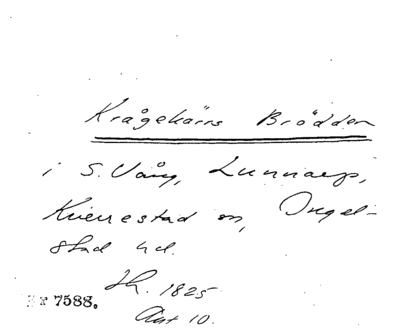 Krågekärrs Brödden
i S. Vång, Lunnarp,
Kverrestad sn, Ingel-
stad hd.
1825
Akt 10.
Nr 7588.